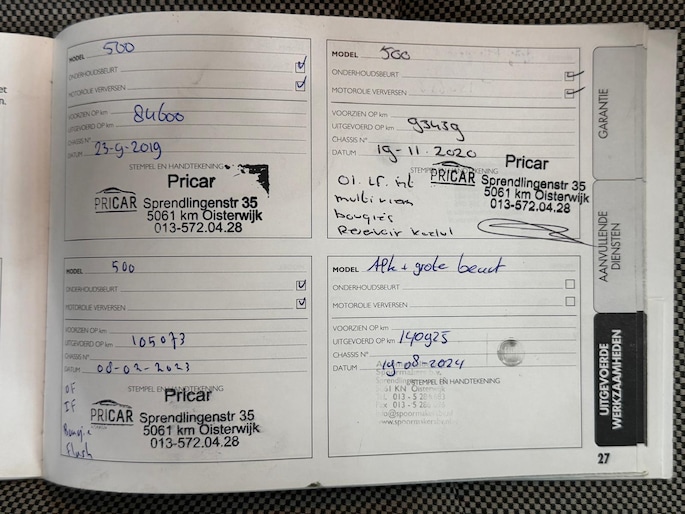 MODEL 500
ONDERHOUDSBEURT
MOTOROLIE VERVERSEN
VOORZIEN OP km
UITGEVOERD OP km 84600
CHASSIS N°
DATUM 23-9-2019
STEMPEL EN HANDTEKENING
Pricar
PRICAR Sprendlingenstr 35
5061 km Oisterwijk
013-572.04.28
MODEL 500
ONDERHOUDSBEURT
MOTOROLIE VERVERSEN
VOORZIEN OP km
UITGEVOERD OP km 93439
CHASSIS N°
DATUM 19-11-2020
STEMPEL EN HANDTEKENING
Pricar
PRICAR Sprendlingenstr 35
5061 km Oisterwijk
013-572.04.28
multiriem
bougies
Reservoir
MODEL 500
ONDERHOUDSBEURT
MOTOROLIE VERVERSEN
VOORZIEN OP km
UITGEVOERD OP km 105073
CHASSIS N°
DATUM 08-02-2023
STEMPEL EN HANDTEKENING
OF
IF
Bougie
Flush
Pricar
PRICAR Sprendlingenstr 35
5061 km Oisterwijk
013-572.04.28
MODEL APK + grote beurt
ONDERHOUDSBEURT
MOTOROLIE VERVERSEN
VOORZIEN OP km
UITGEVOERD OP km 140925
CHASSIS N°
DATUM 19-08-2024
STEMPEL EN HANDTEKENING
Oisterwijk
GARANTIE
AANVULLENDE
DIENSTEN
UITGEVOERDE
WERKZAAMHEDEN
27